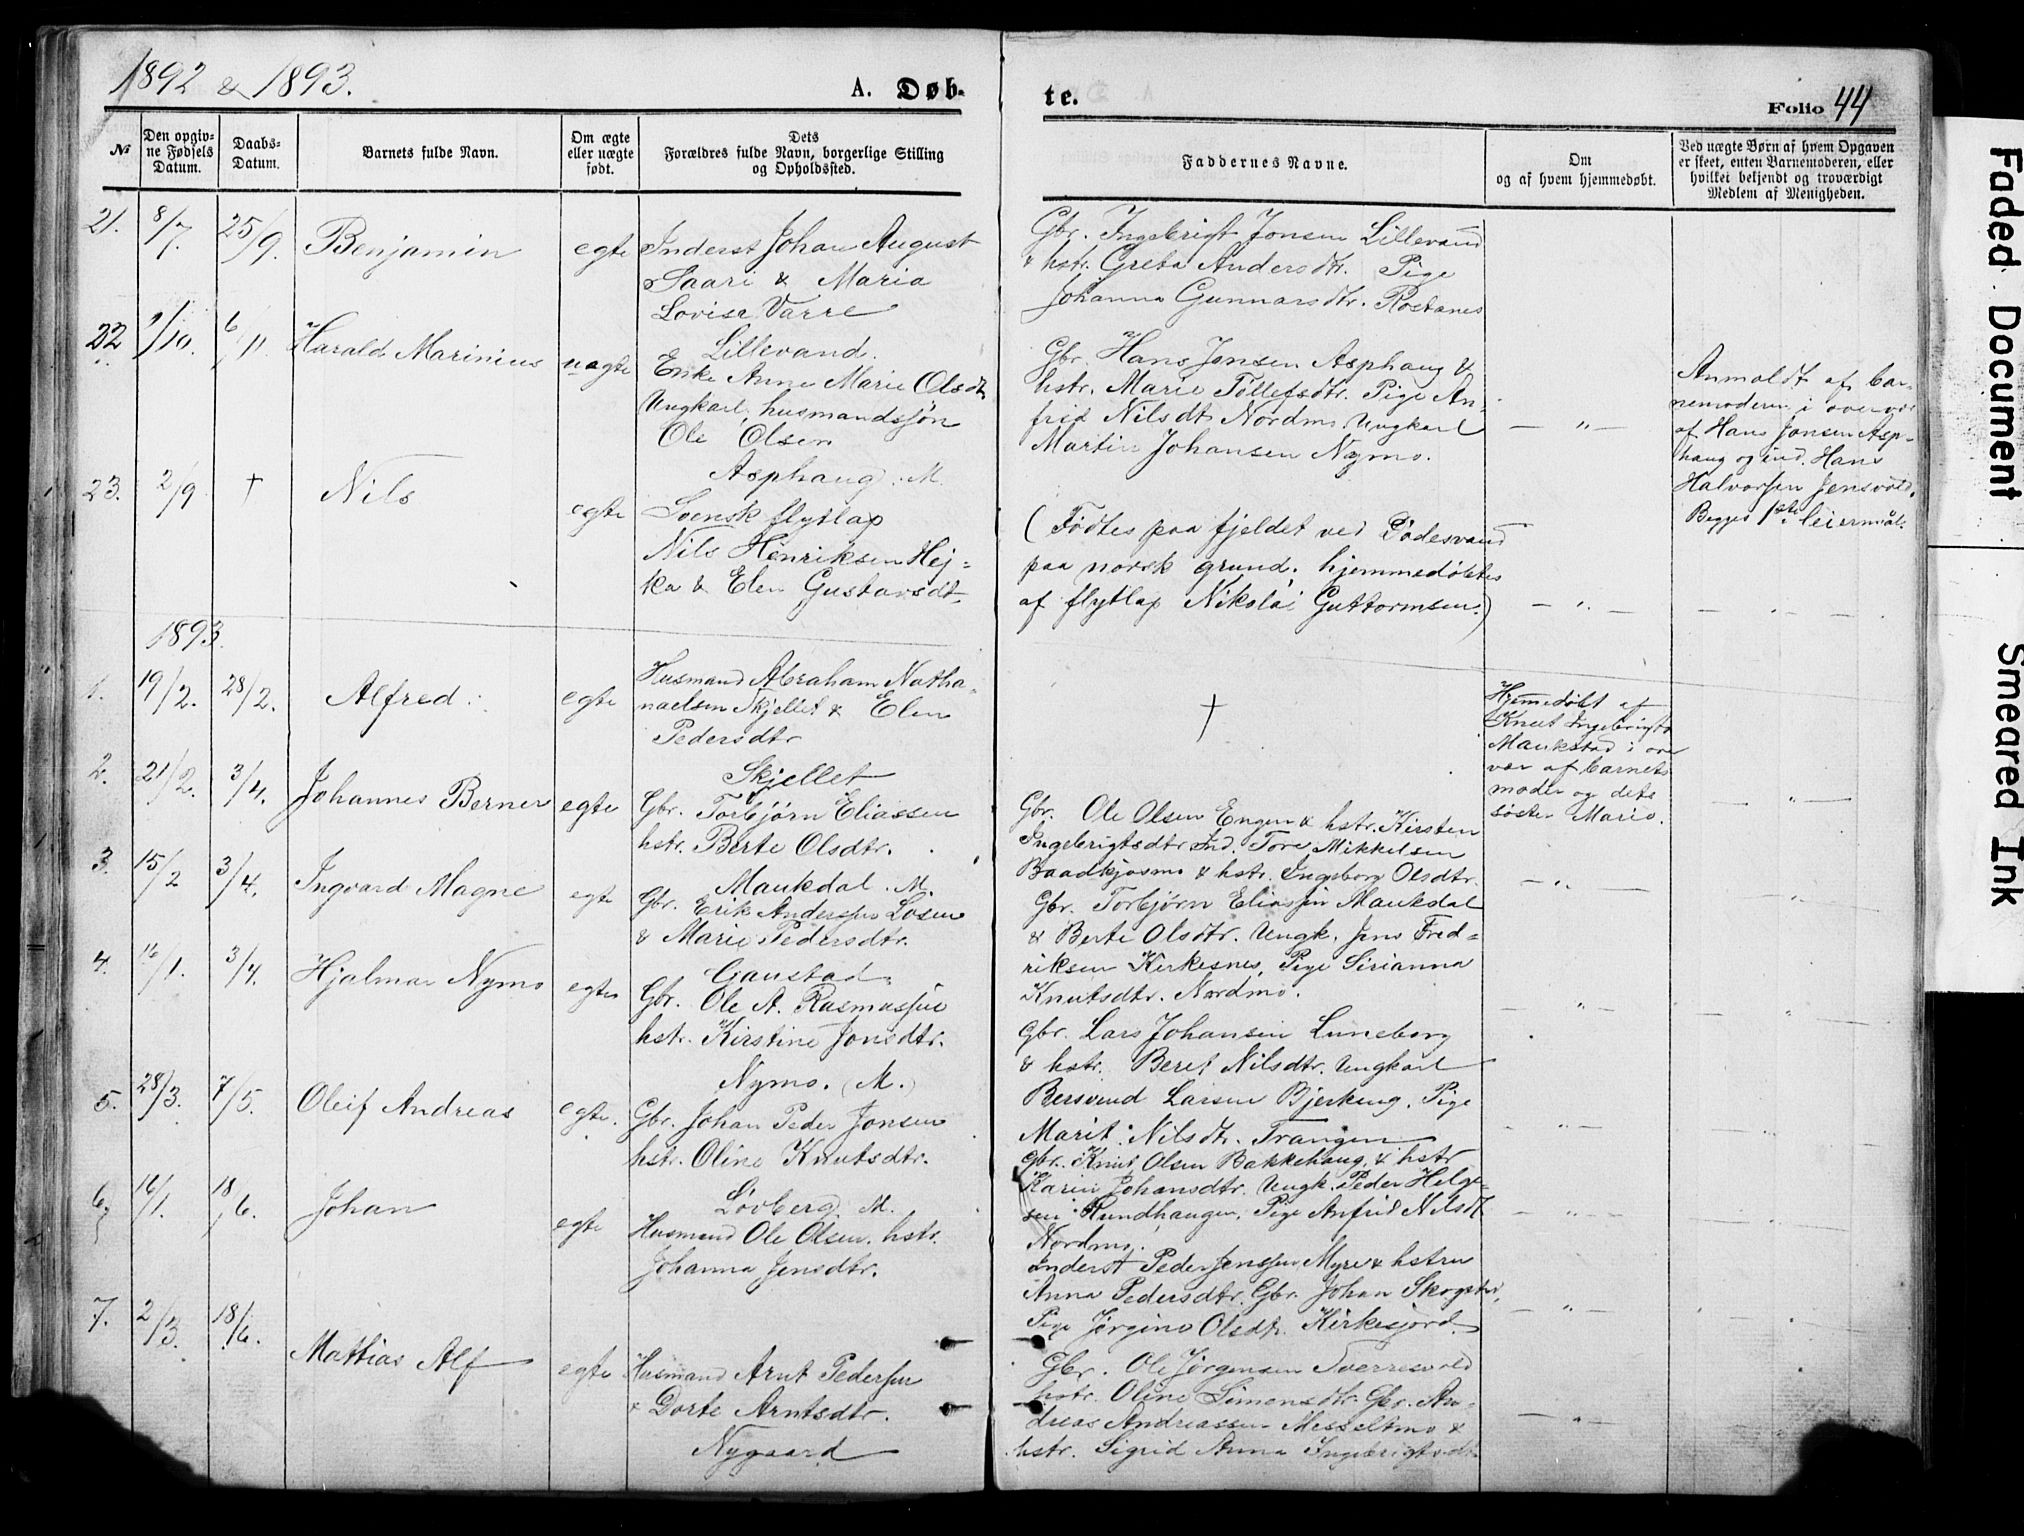 1892 & 1893.
A. Døb-
te.
Folio 44
№
Den opgiv-
ne Fødsels
Datum.
Daabs-
Datum.
Barnets fulde Navn.
Om ægte
eller uægte
født.
Dets
Forældres fulde Navn, borgerlige Stilling
og Opholdssted.
Faddernes Navne.
Om
og af hvem hjemmedøbt.
Ved uægte Børn af hvem Opgaven
er skeet, enten Barnemoderen, eller
hvilket bekjendt og troværdigt
Medlem af Menigheden.
21. 8/7. 25/9. Benjamin egte
Inderst Johan August
Saari & Maria
Lovisa Varre
Lillevand.
Gbr. Ingebrigt Jonsen Lillevand
& hstr. Greta Andersdtr. Pige
Johanna Gunnarsdtr. Rostanes
22 /10. 6/11. Harald Marinius uægte
Enke Anne Marie Olsdt
Ungkarl, husmandssøn
Ole Olsen
Asphaug. M.
Gbr. Hans Jonsen Asphaug &
hstr. Marie Tollefsdtr. Pige An-
frid Nilsdt Nordmo Ungkarl
Martin Johansen Nymo.
— " —
Anmeldt af bar-
nemoderen i overvær
af Hans Jonsen Asp-
haug og ind. Hans
Halvorsen Jensvold.
Begges 1ste leiermål.
23. 2/9 † Nils egte
Svensk flytlap
Nils Henriksen Hej-
ka & Elen Gustavsdt.
(Fødtes paa fjeldet ved Dødesvand
paa norsk grund. hjemmedøbtes
af flytlap Nikolai Guttormsen.)
— " —
— " —
1893.
1. 19/2. 28/2. Alfred. egte
Husmand Abraham Natha-
naelsen Skjellet & Elen
Pedersdtr
Skjellet
†
Hjemmedøbt af
Knut Ingebrigts
Maukstad i over
vær af barnets
moder og dets
søster Marie.
— " —
2. 21/2. 3/4. Johannes Berner egte
Gbr. Torbjørn Eliassen
hstr. Berte Olsdtr.
Maukdal. M.
Gbr. Ole Olsen Engen & hstr. Kirsten
Ingebrigtsdtr Ind. Tore Mikkelsen
Baadkjosmo & hstr. Ingeborg Olsdtr.
— " —
— " —
3. 15/2 3/4. Ingvard Magne egte
Gbr. Erik Andersen Losen
& Marie Pedersdtr.
Gaustad
Gbr. Torbjørn Eliassen Maukdal
& Berte Olsdtr. Ungk. Jens Fred-
riksen Kirkesnes, Pige Sirianna
Knutsdtr. Nordmo.
— " —
— " —
4. 16/1. 3/4. Hjalmar Nymo egte
Gbr. Ole A. Rasmussen
hstr. Kirstine Jonsdtr.
Nymo. (M.)
Gbr. Lars Johansen Luneborg
& hstr. Beret Nilsdtr. Ungkarl
Bersvend Larsen Bjerkeng. Pige
Marit Nilsdtr. Trangen
— " —
5. 28/3. 7/5. Oleif Andreas egte.
Gbr. Johan Peder Jonsen
hstr. Oline Knutsdtr.
Løvberg. M.
Gbr. Knut Olsen Bakkehaug, & hstr
Karen Johansdtr. Ungk. Peder Helge-
sen Rundhaugen, Pige Anfrid Nilsdt
Nordmo.
— " —
— " —
6. 16/1. 18/6. Johan egte
Husmand Ole Olsen. hstr.
Johanna Jensdtr.
Inderst Peder Jenssen Myre & hstru
Anna Pedersdtr. Gbr. Johan
Pige Jørgine Olsdtr. Kirkesjord.
— " —
7. 2/3. 18/6. Mathias Alf egte
Husmand Arnt Pedersen
& Dorte Arntsdtr.
Nygaard
Gbr. Ole Jørgensen Sverresvold
hstr. Oline Simonsdtr. Gbr. An-
dreas Andreassen Messeltmo &
hstr. Sigrid Anna Ingebrigtsdt.
— " —
Faded Document
Smeared Ink